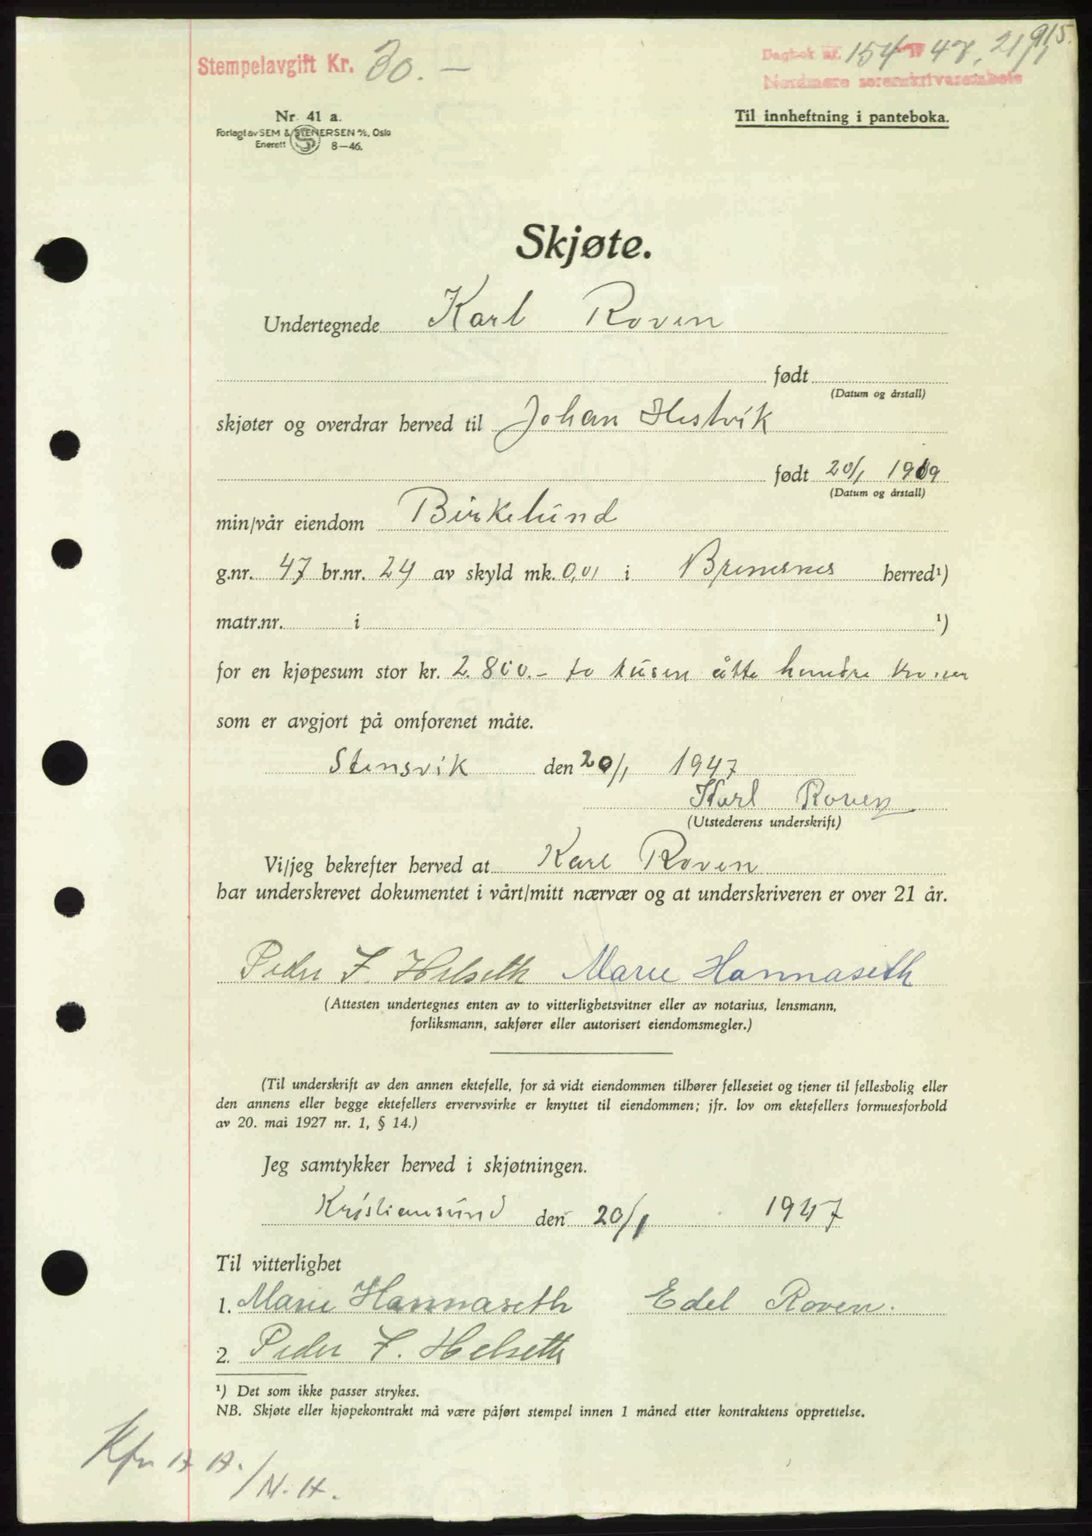 915.
Stempelavgift Kr. 30.–
Dagbok nr. 154 19 47, 21/1
Nordmøre sorenskriverembete
Nr. 41 a.
Forlagt av SEM & STENERSEN A/S, Oslo
Enerett 8–46.
Til innheftning i panteboka.
Skjøte.
Undertegnede Karl Roven
født
(Datum og årstall)
skjøter og overdrar herved til Johan Hestvik
født 20/1 1919
(Datum og årstall)
min/vår eiendom Birkelund
g.nr. 47 br.nr. 24 av skyld mk. 0,01 i Bremsnes herred¹)
matr.nr. i ¹)
for en kjøpesum stor kr. 2.800.– to tusen åtte hundre kroner
som er avgjort på omforenet måte.
Stensvik den 20/1 1947
Karl Roven
(Utstederens underskrift)
Vi/jeg bekrefter herved at Karl Roven
har underskrevet dokumentet i vårt/mitt nærvær og at underskriveren er over 21 år.
Peder F. Helseth Marie Hannaseth
(Attesten undertegnes enten av to vitterlighetsvitner eller av notarius, lensmann,
forliksmann, sakfører eller autorisert eiendomsmegler.)
(Til underskrift av den annen ektefelle, for så vidt eiendommen tilhører felleseiet og tjener til fellesbolig eller
den annens eller begge ektefellers ervervsvirke er knyttet til eiendommen; jfr. lov om ektefellers formuesforhold
av 20. mai 1927 nr. 1, § 14.)
Jeg samtykker herved i skjøtningen.
Kristiansund den 20/1 1947
Til vitterlighet
1. Marie Hannaseth Edel Roven.
2. Peder F. Helseth
¹) Det som ikke passer strykes.
NB. Skjøte eller kjøpekontrakt må være påført stempel innen 1 måned etter kontraktens opprettelse.
/N.H.